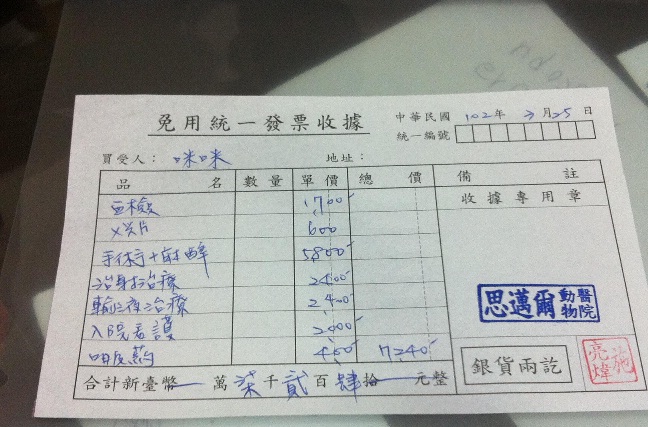 免用統一發票收據
中華民國 102年 3月25日
統一編號
買受人： 咪咪 地址：
品名 數量 單價 總價 備註
血檢 1700
X光片 600
手術+射醉 5800
治療 2400
輸液治療 2400
入院看護 2000
口服药 400 7240
收據專用章
思邁爾動物醫院
銀貨兩訖
施亮煒
合計新臺幣 萬柒千貳百肆拾 元整